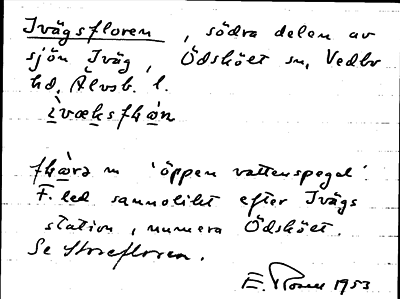 Ivägsfloren, södra delen av
sjön Iväg, Ödsköet sn, Vedbo
hd. Älvsb. l.
ìvæksfḷωn

m 'öppen vattenspegel'.
F. led sannolikt efter Ivägs
station, numera Ödsköet.
Se Storefloren.
E. 1953